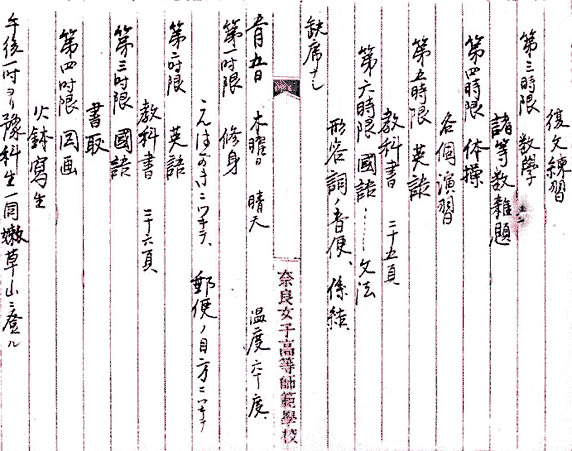 復文練習
第三時限 数學
諸等数雜題
第四時限 体操
各個演習
第五時限 英語
教科書 二十五頁
第六時限 國語……文法
形容詞ノ音便、係結
缺席ナシ
奈良女子高等師範學校
五日 木曜日 晴天 温度六十度
第一時限 修身
ニツキテ 郵便ノ目方ニツキテ
第二時限 英語
教科書 二十六頁
第三時限 國語
書取
第四時限 図画
火鉢寫生
午後一時ヨリ豫科生一同嫩草山ニ登ル